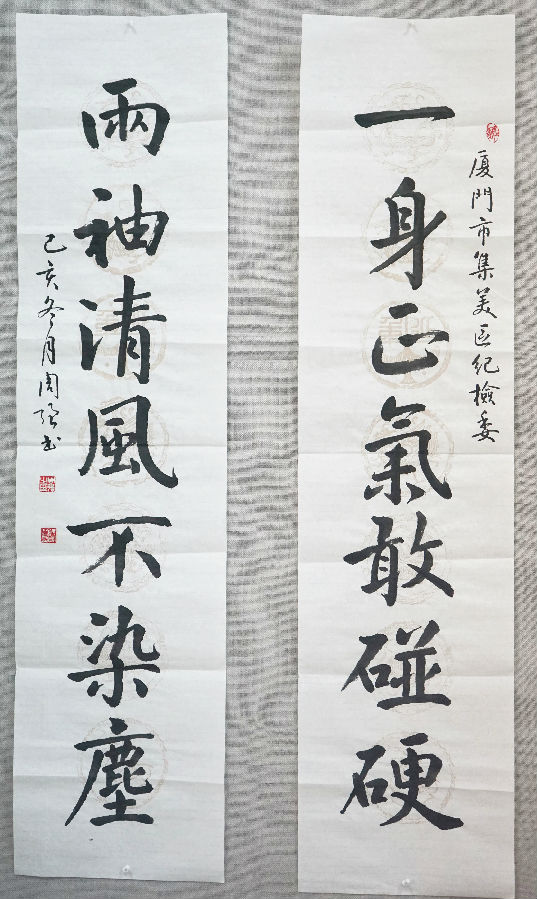 厦門市集美区纪檢委
一身正氣敢碰硬
兩袖清風不染塵
己亥冬月周强书